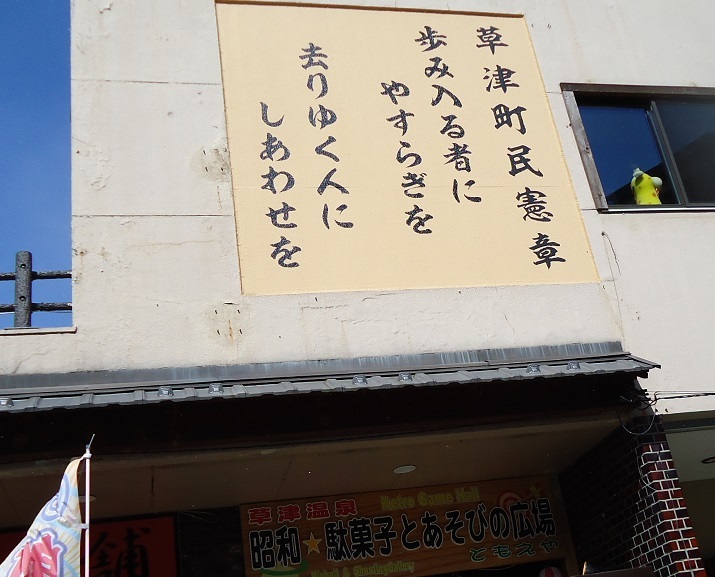 草津町民憲章
歩み入る者に
やすらぎを
去りゆく人に
しあわせを
草津温泉
Retro Game Hall
昭和★駄菓子とあそびの広場
ともえや
舗